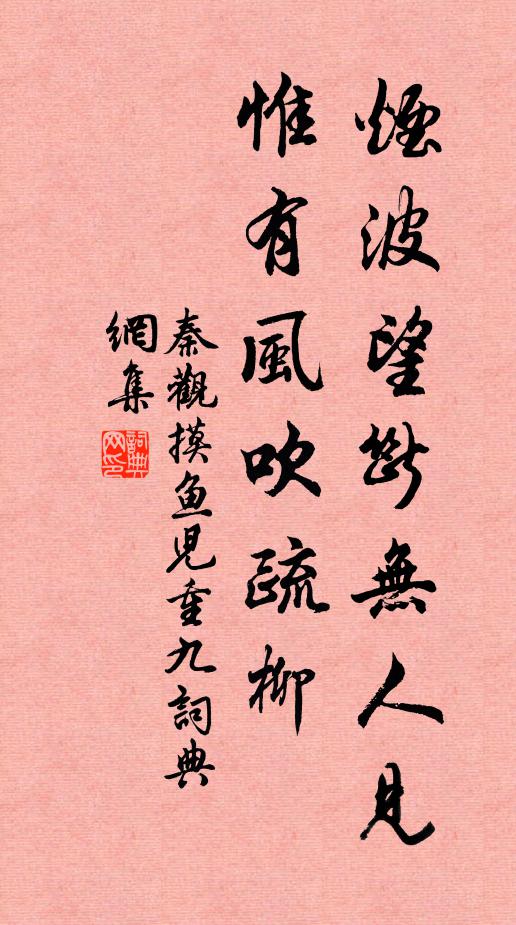 煙波望斷無人見
惟有風吹疏柳
秦觀摸魚兒重九詞典
網集
詞典網印